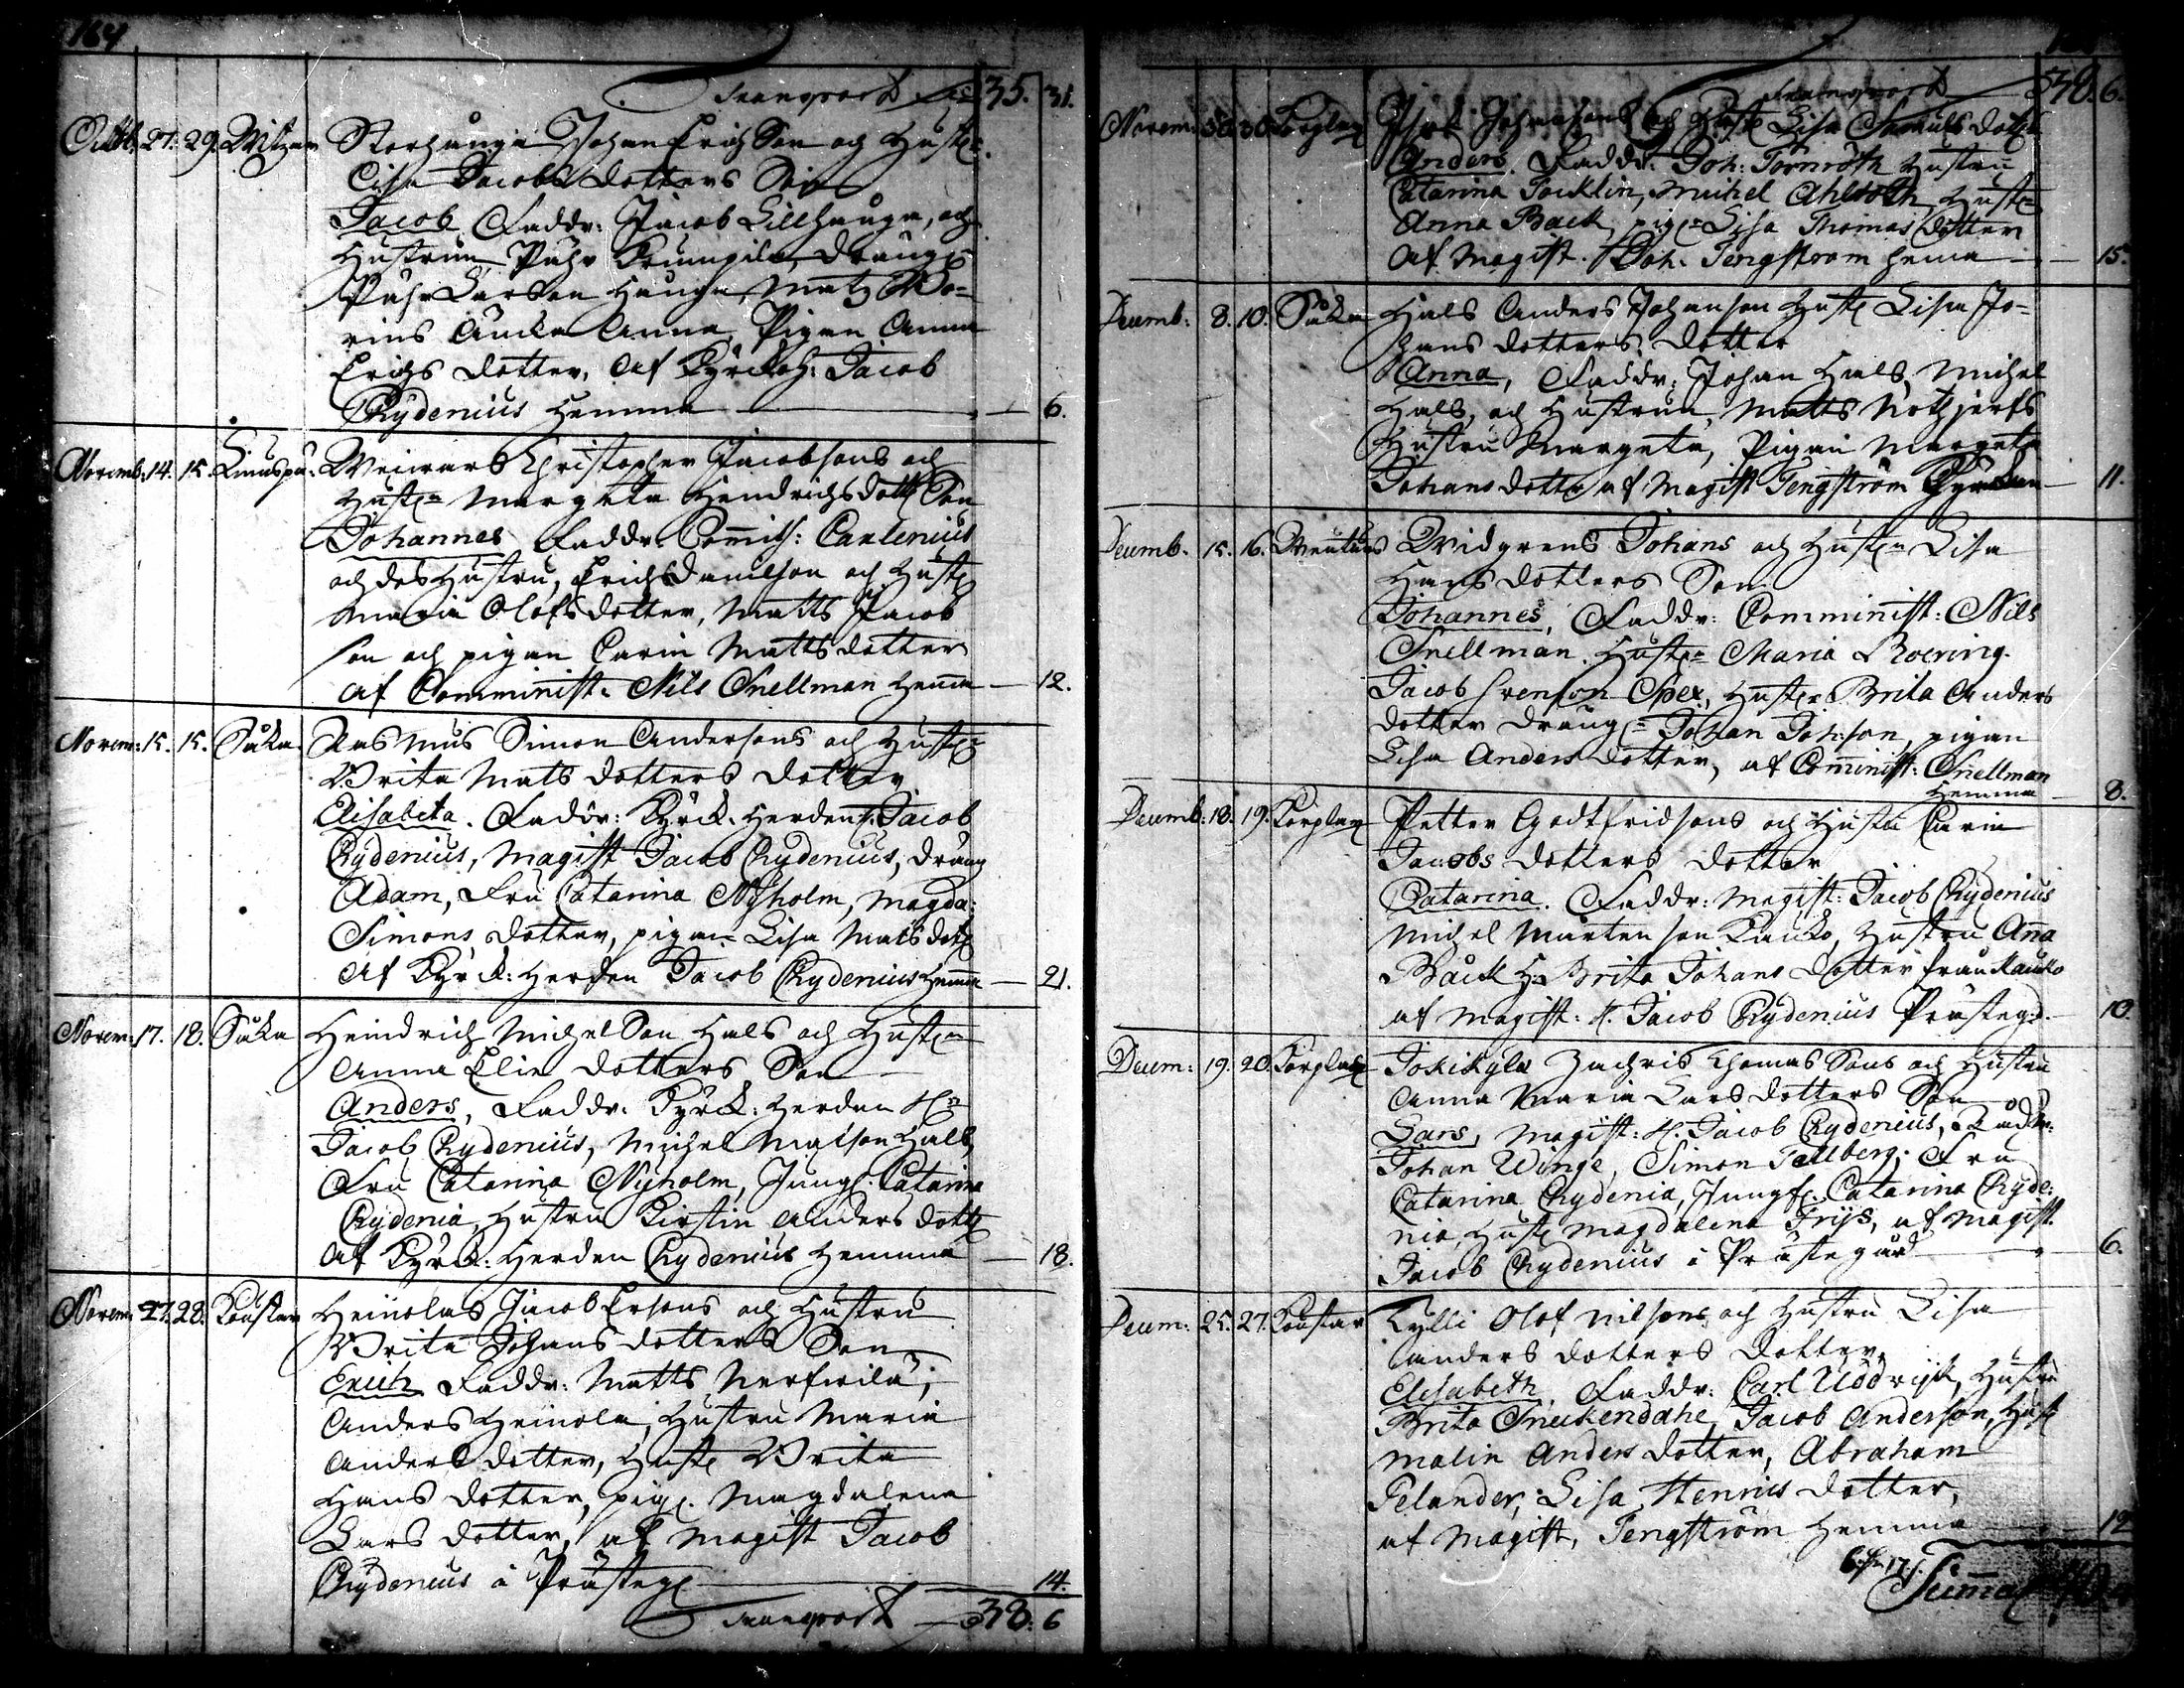 164
Transport 35. 31.
Octob: 27. 29. Storhauga Johan Erichson och Hust:
Lisa Jacobs dotters Son
Jacob Faddr: Jacob Lillhauga, och
Hustrun, Påhr dräng
Påhr Larsson Hauga, Matz
Enka Anna, Pigan Anna
Erichs dotter, Af Kyrckoh: Jacob
Chydenius Hemma — 6.
Novemb: 14. 15. Christopher Jacobsons och
Hust: Margeta Hendrichsdott: Son
Johannes Faddr. Com̄is: Carlenius
och des Hustru, Erich Danielson och Hust:
Maria Olofsdotter, Matts Jacob
son och pigan Carin Mattsdotter
af Comminist: Nils Snellman Hem̄a — 12.
Novem: 15. 15. Såka. Rasmus Simon Andersons och Hust:
Brita Mats dotters dotter
Elisabeta. Faddr: Kyrck. Herden H. Jacob
Chydenius, Magist Jacob Chydenius, dräng
Adam, Fru Catarina Nyholm, Magda:
Simons dotter, pigan Lisa Mats dott:
Af Kyrck: Herden Jacob Chydenius Hem̄a — 21.
Novem: 17. 18. Såka Heindrich Michelson Hals och Hust:
Anna Elin dotters Son
Anders, Faddr. Kyrck: Herden Hr
Jacob Chydenius, Michel Matson Hals,
Fru Catarina Nyholm, Jungf. Catarina
Chydenia, Hustru Kirstin Anders dott:
Af Kyrck: Herden Chydenius Hemma — 18.
Novem: 27. 28. Heinolas Jacob Ersons och Hustru
Brita Johans dotters Son
Erich Faddr: Matts
Anders Heinola, Hustru Maria
Anders dotter, Hust: Brita
Hans dotter, pig: Magdalena
Lars dotter, af Magist Jacob
Chydenius i Prästeg: — 14.
Transport — 38: 6
Transport 38. 6.
Novem: 30. Johansons och Hust: Lisa Samuels dott:
Anders. Faddr: Joh: Törnroth Hustru
Catarina Michel Ahlroth, Hust:
Anna Back, pig: Lisa Thomas dotter
Af Magist. Joh: Tengstrom hema — 15.
Decemb: 8. 10. Såka Hals Anders Johanson Hust: Lisa Jo-
hans dotters dotter
Anna, Faddr: Johan Hals, Michel
Hals, och Hustrun, Matts
Hustru Margeta, Pigan Margeta
Johans dotter af Magist Tengström Kyrckan — 11.
Decemb. 15. 16. Qvidgrens Johans och Hust: Lisa
Hans dotters Son
Johannes, Faddr: Comminist: Nils
Snellman. Hust: Maria Roering.
Jacob Svenson Spex, Hust: Brita Anders
dotter dräng: Johan Johson, pigan
Lisa Anders dotter, af Com̄inist: Snellman
Hemma — 8.
Decemb: 18. 19. Petter Godtfridsons och Hustru Carin
Jacobs dotters dotter
Catarina. Faddr: Magist: Jacob Chydenius
Michel Mårtenson Kauko, Hustru An̄a
Bäck H: Brita Johans dotter från Kauko
af Magist: H. Jacob Chydenius Prästeg:d — 10.
Decem: 19. 20. Jokikyla Zachris Thomas Sons och Hustru
Anna Maria Lars dotters Son
Lars, Magist: H. Jacob Chydenius, Rådm:
Johan Winge, Simon Tellberg; Fru
Catarina Chydenia, Jungf. Catarina Chyde:
nia, Hust: Magdalena Frijs, af Magist
Jacob Chydenius i Prästegård — 6.
Decem: 25. 27. Kylli Olof Nilsons och Hustru Lisa
Anders dotters dotter,
Elisabeth, Faddr: Carl Hustru
Brita Jacob Anderson, Hust:
Malin Anders dotter, Abraham
Pelander, Lisa Henrics dotter,
af Magist, Tengström Hemma — 12
Sum̄a